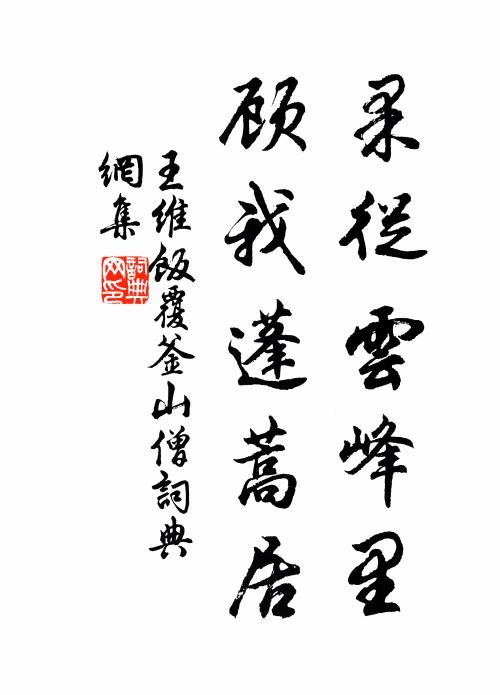 果從雲峰里
顧我蓬蒿居
王維飯覆釜山僧詞典
網集
詞典網印